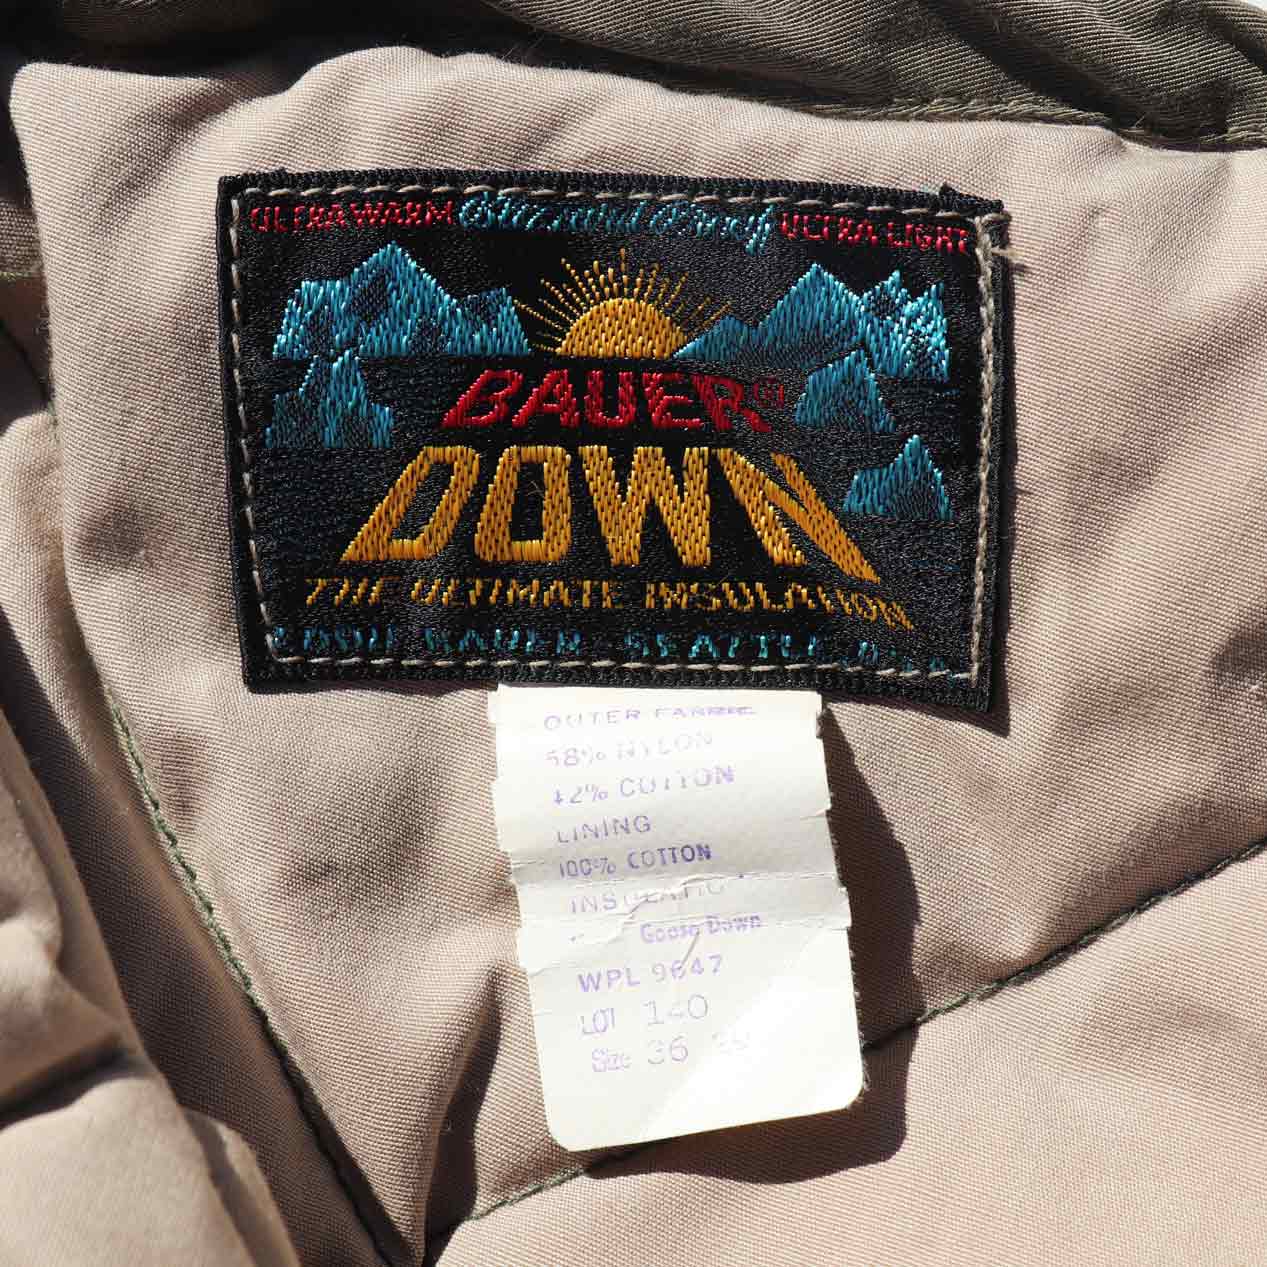 ULTRA WARM Blizzard Proof ULTRA LIGHT
BAUER®
DOWN
THE ULTIMATE INSULATION
EDDIE BAUER SEATTLE U.S.A.
OUTER FABRIC
58% NYLON
42% COTTON
LINING
100% COTTON
INSULATION
Goose Down
WPL 9647
LOT 140
Size 36